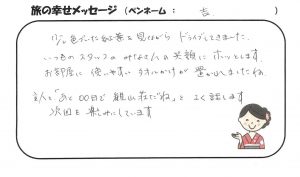 旅の幸せメッセージ(ペンネーム: 吉 )
少し色づいた紅葉を見ながらドライブしてきました。
いつものスタッフのみなさんの笑顔にホッとします。
お部屋に使いやすいタオルかけが置かれましたね。
主人と「あと〇〇日で 荘だね」とよく話します
次回を楽しみにしています